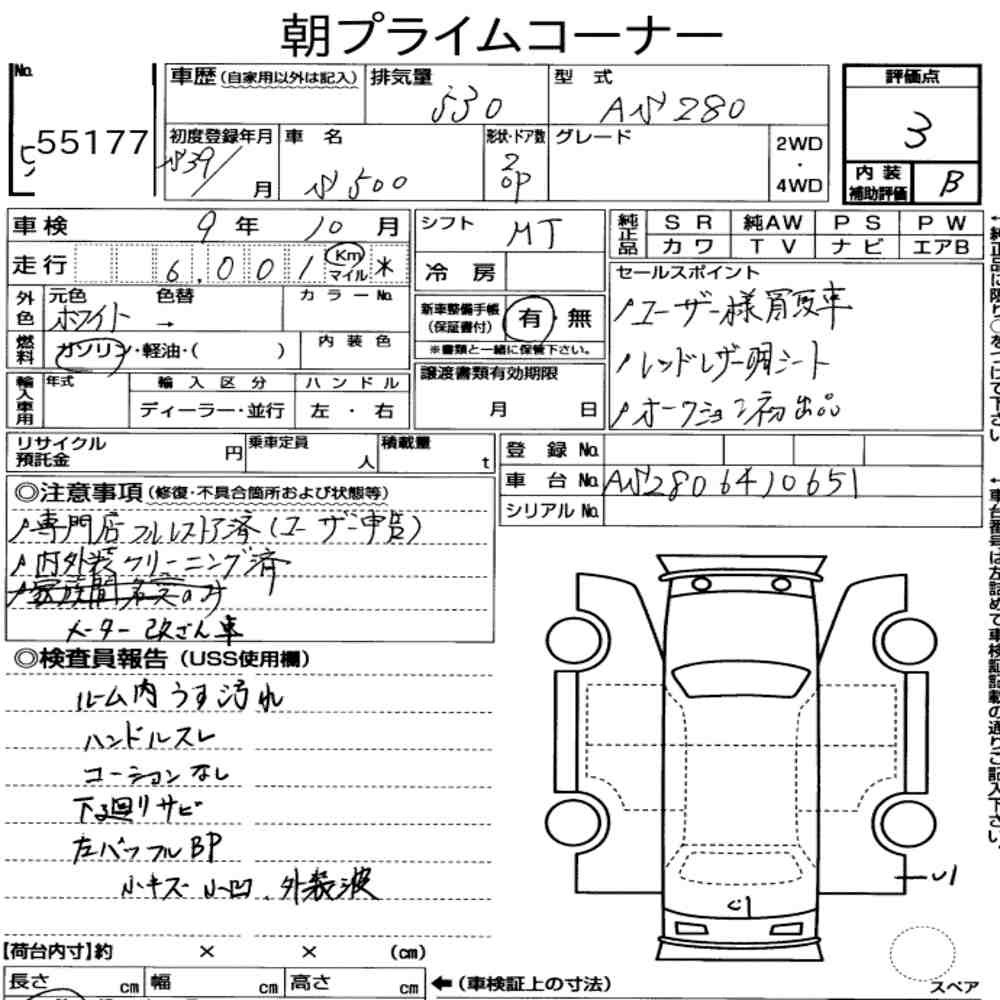 朝プライムコーナー
No.
車歴(自家用以外は記入) 排気量 型 式 評価点
530 AS280 3
55177
初度登録年月 車 名 形状・ドア数 グレード 2WD
・
4WD
S39/ 月 S500 2 OP
内装補助評価 B
車検 9年 10月 シフト MT 純正品 SR 純AW PS PW
カワ TV ナビ エアB
走行 6,001 Km マイル ※ 冷房
セールスポイント
外色 元色 色替 カラーNo.
ホワイト →
新車整備手帳(保証書付) 有・無
※書類と一緒に保管下さい。
ユーザー様買取車
燃料 ガソリン・軽油・( ) 内装色
レッドレザー調シート
輸入車用 年式 輸入区分 ハンドル
ディーラー・並行 左・右
譲渡書類有効期限
月 日
オークション初出品
リサイクル預託金 円 乗車定員 人 積載量 t
登録 No.
車台 No. AS2806410651
シリアル No.
◎注意事項(修復・不具合箇所および状態等)
専門店フルレストア済(ユーザー申告)
内外装クリーニング済
メーター改ざん車
◎検査員報告(USS使用欄)
ルーム内うす汚れ
ハンドルスレ
コーションなし
下廻りサビ
左バッフルBP
小キズ 小凹、外装波
U1
C1
【荷台内寸】約 × × (cm)
長さ cm 幅 cm 高さ cm ←(車検証上の寸法)
スペア
↑純正品に限り○をつけて下さい
↑車台番号は左詰めて車検証記載の通りご記入下さい。